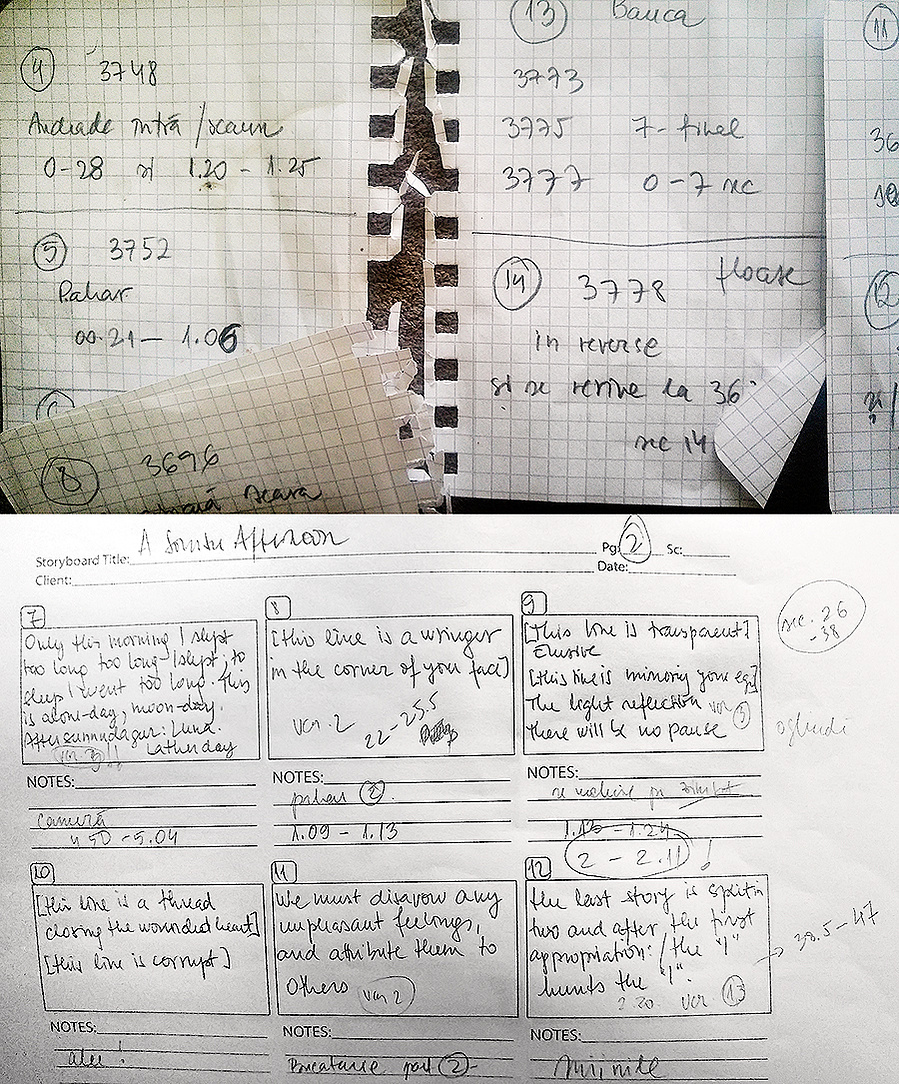 4 3748
Andrade intră / scaun
0-28 și 1.20 - 1.25
5 3752
Pahar
00.21 - 1.06
6
8 3696
scara
13 Banca
3773
3775 7 - final
3777 0 - 7 sec
14 3778 floare
in reverse
și se revine la 36
sec 14
11
36
12
Storyboard Title: A Afternoon
Pg: 2 Sc:
Client:
Date:
7
Only this morning I slept
too long too long I slept, to
sleep I went too long. This
is alone-day, moon-day.
After sunnudagur: Luna.
Lather day
NOTES:
cameră
4.50 - 5.04
8
[this line is a wringer
in the corner of your face]
var. 2
22 - 25.5
NOTES:
pahar 2
1.09 - 1.13
9
[This line is transparent]
Elusive
[this line is mimory your ego]
The light reflection var
there will be no pause
NOTES:
1.13 - 1.24
2 - 2.11 !
sec. 26
- 38
oglindă
10
[this line is a thread
closing the wounded heart]
[this line is corrupt]
NOTES:
alee!
11
We must disavow any
unpleasant feelings,
and attribute them to
others var 2
NOTES:
Bucatarie 2
12
the last story is split in
two and after the first
appropriation: / the "I"
hunts the "I".
2.20. var 13
38.5 - 47
NOTES: